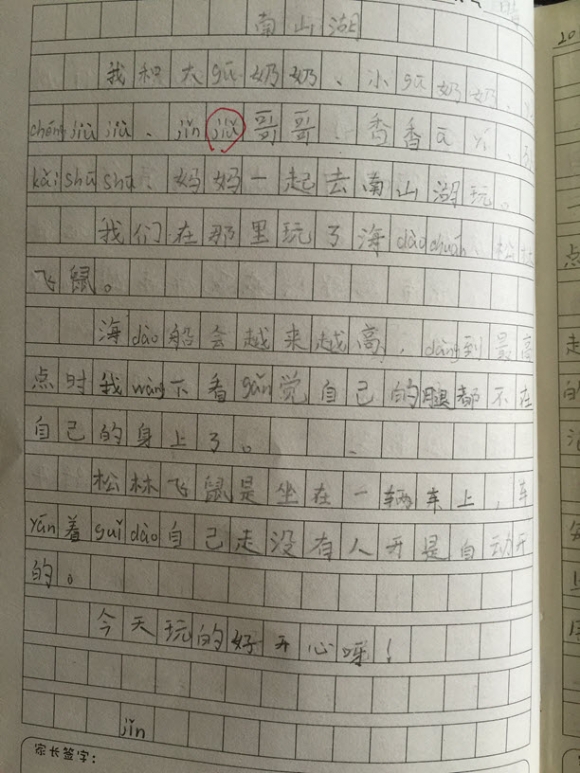 南山湖
我和大gū奶奶、小gū奶奶、
chéngjiù jiu、jǐn jiù哥哥、香香ā yí、
kǎi shū shu、妈妈一起去南山湖玩。
我们在那里玩了海dào chuán、松林
飞鼠。
海dào船会越来越高，dāng到最高
点时我wǎng下看gǎn觉自己的腿都不在
自己的身上了。
松林飞鼠是坐在一辆车上，车
yán着guǐ dào自己走没有人开是自动开
的。
今天玩的好开心呀！
jǐn
家长签字：
20